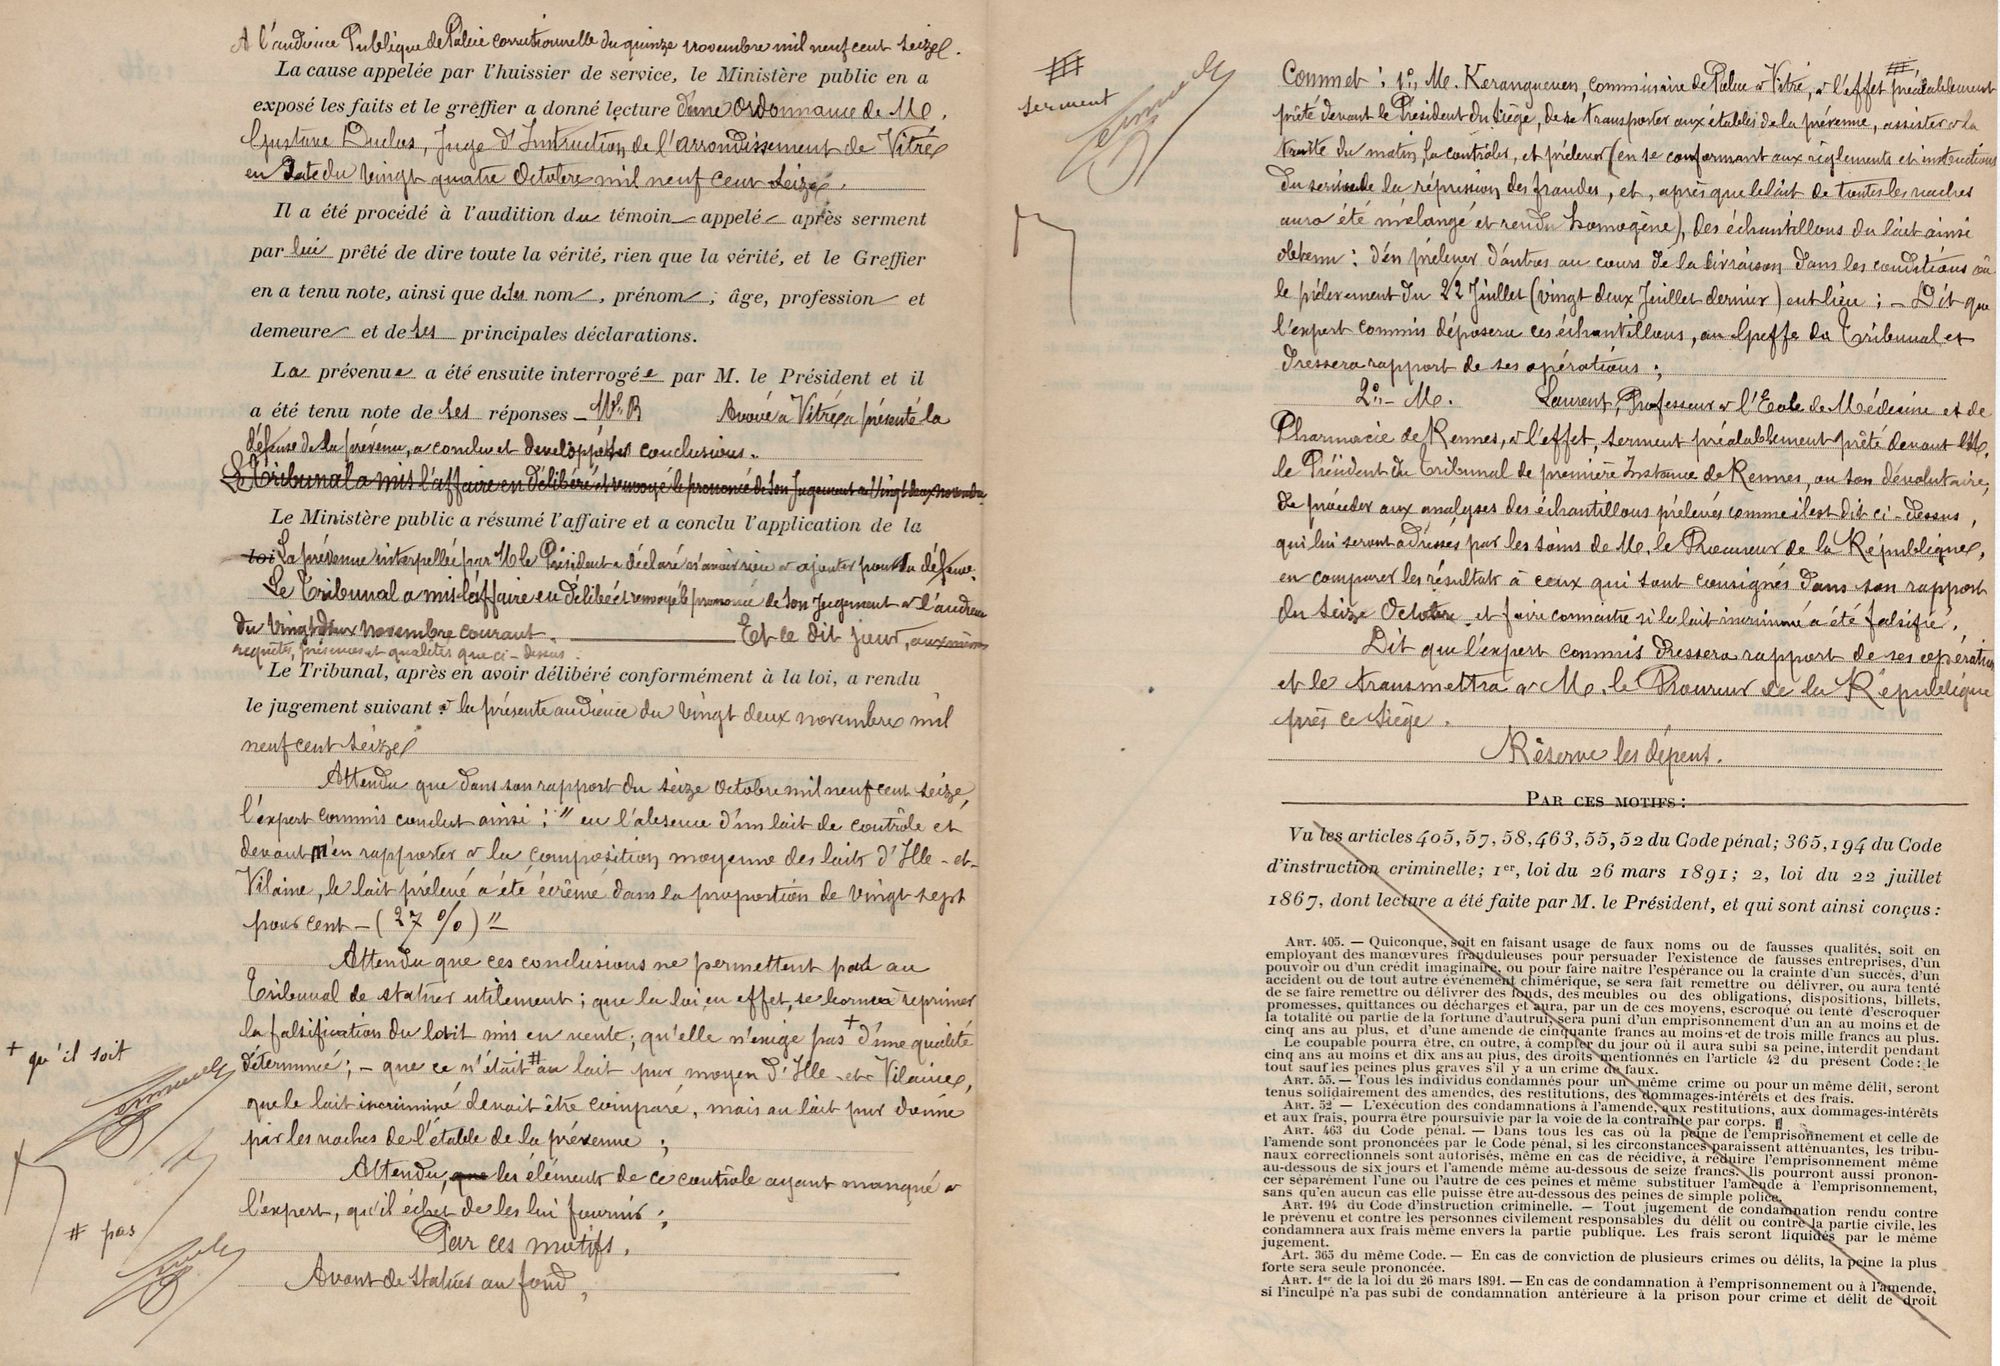 A l'audience Publique de Police correctionnelle du quinze novembre mil neuf cent seize.
La cause appelée par l'huissier de service, le Ministère public en a
exposé les faits et le greffier a donné lecture d'une Ordonnance de M.
Gustave Duclos, Juge d'Instruction de l'arrondissement de Vitré
en Date du vingt quatre Octobre mil neuf cent seize.
Il a été procédé à l'audition du témoin appelé après serment
par lui prêté de dire toute la vérité, rien que la vérité, et le Greffier
en a tenu note, ainsi que de ses nom, prénom, âge, profession et
demeure et de ses principales déclarations.
La prévenue a été ensuite interrogée par M. le Président et il
a été tenu note de ses réponses – Me B Avoué à Vitré a présenté la
défense de la prévenue, a conclu et développé ses conclusions.
Le Tribunal a mis l'affaire en délibéré et renvoyé le prononcé de son Jugement au Vingt deux novembre
Le Ministère public a résumé l'affaire et a conclu l'application de la
loi La prévenue interpellée par M le Président a déclaré n'avoir rien à ajouter pour sa défense.
Le Tribunal a mis l'affaire en délibéré et renvoyé le prononcé de son Jugement à l'audience
du vingt deux novembre courant. Et ce dit jour, aux mêmes
requêtes, présences et qualités que ci-dessus.
Le Tribunal, après en avoir délibéré conformément à la loi, a rendu
le jugement suivant à la présente audience du vingt deux novembre mil
neuf cent seize
Attendu que dans son rapport du seize Octobre mil neuf cent seize,
l'expert commis conclut ainsi : " en l'absence d'un lait de contrôle et
devant m'en rapporter à la composition moyenne des laits d'Ille-et-
Vilaine, le lait prélevé a été écrémé dans la proportion de vingt sept
pour cent – (27 %) " –
Attendu que ces conclusions ne permettent pas au
Tribunal de statuer utilement ; que la loi, en effet, se borne à réprimer
la falsification du lait mis en vente ; qu'elle n'exige pas + d'une qualité
déterminée ; – que ce n'était # au lait pur moyen d'Ille-et-Vilaine,
que le lait incriminé devait être comparé, mais au lait pur donné
par les vaches de l'étable de la prévenue ;
Attendu, que les éléments de ce contrôle ayant manqué à
l'expert, qu'il échet de les lui fournir ;
Par ces motifs,
Avant de statuer au fond,
+ qu'il soit
# pas
serment
Commet : 1°, M. Kerangueven, commissaire de Police à Vitré, à l'effet, préalablement
prêté devant le Président du Siège, de se transporter aux étables de la prévenue, assister à la
traite du matin, la contrôler, et prélever (en se conformant aux règlements et instructions
du service de la répression des fraudes, et, après que le lait de toutes les vaches
aura été mélangé et rendu homogène), des échantillons du lait ainsi
obtenu : d'en prélever d'autres au cours de la livraison dans les conditions où
le prélèvement du 22 Juillet (vingt deux Juillet dernier) eut lieu ; – Dit que
l'expert commis déposera ces échantillons, au Greffe du Tribunal et
dressera rapport de ses opérations ;
2° – M. Laurent, Professeur à l'Ecole de Médecine et de
Pharmacie de Rennes, à l'effet, serment préalablement prêté devant M.
le Président du Tribunal de première Instance de Rennes, ou son dévolutaire,
de procéder aux analyses des échantillons prélevés comme il est dit ci-dessus,
qui lui seront adressés par les soins de M. le Procureur de la République,
en comparer les résultats à ceux qui sont consignés dans son rapport
du seize Octobre et faire connaître si le lait incriminé a été falsifié.
Dit que l'expert commis dressera rapport de ses opérations
et le transmettra à M. le Procureur de la République
près ce Siège.
Réserve les dépens.
PAR CES MOTIFS :
Vu les articles 405, 57, 58, 463, 55, 52 du Code pénal ; 365, 194 du Code
d'instruction criminelle ; 1er, loi du 26 mars 1891 ; 2, loi du 22 juillet
1867, dont lecture a été faite par M. le Président, et qui sont ainsi conçus :
ART. 405. — Quiconque, soit en faisant usage de faux noms ou de fausses qualités, soit en
employant des manœuvres frauduleuses pour persuader l'existence de fausses entreprises, d'un
pouvoir ou d'un crédit imaginaire, ou pour faire naître l'espérance ou la crainte d'un succès, d'un
accident ou de tout autre événement chimérique, se sera fait remettre ou délivrer, ou aura tenté
de se faire remettre ou délivrer des fonds, des meubles ou des obligations, dispositions, billets,
promesses, quittances ou décharges et aura, par un de ces moyens, escroqué ou tenté d'escroquer
la totalité ou partie de la fortune d'autrui, sera puni d'un emprisonnement d'un an au moins et de
cinq ans au plus, et d'une amende de cinquante francs au moins et de trois mille francs au plus.
Le coupable pourra être, en outre, à compter du jour où il aura subi sa peine, interdit pendant
cinq ans au moins et dix ans au plus, des droits mentionnés en l'article 42 du présent Code : le
tout sauf les peines plus graves s'il y a un crime de faux.
ART. 55. — Tous les individus condamnés pour un même crime ou pour un même délit, seront
tenus solidairement des amendes, des restitutions, des dommages-intérêts et des frais.
ART. 52 — L'exécution des condamnations à l'amende, aux restitutions, aux dommages-intérêts
et aux frais, pourra être poursuivie par la voie de la contrainte par corps.
ART. 463 du Code pénal. — Dans tous les cas où la peine de l'emprisonnement et celle de
l'amende sont prononcées par le Code pénal, si les circonstances paraissent atténuantes, les tribu-
naux correctionnels sont autorisés, même en cas de récidive, à réduire l'emprisonnement même
au-dessous de six jours et l'amende même au-dessous de seize francs. Ils pourront aussi pronon-
cer séparément l'une ou l'autre de ces peines et même substituer l'amende à l'emprisonnement,
sans qu'en aucun cas elle puisse être au-dessous des peines de simple police.
ART. 194 du Code d'instruction criminelle. — Tout jugement de condamnation rendu contre
le prévenu et contre les personnes civilement responsables du délit ou contre la partie civile, les
condamnera aux frais même envers la partie publique. Les frais seront liquidés par le même
jugement.
Art. 365 du même Code. — En cas de conviction de plusieurs crimes ou délits, la peine la plus
forte sera seule prononcée.
ART. 1er de la loi du 26 mars 1891. — En cas de condamnation à l'emprisonnement ou à l'amende,
si l'inculpé n'a pas subi de condamnation antérieure à la prison pour crime et délit de droit